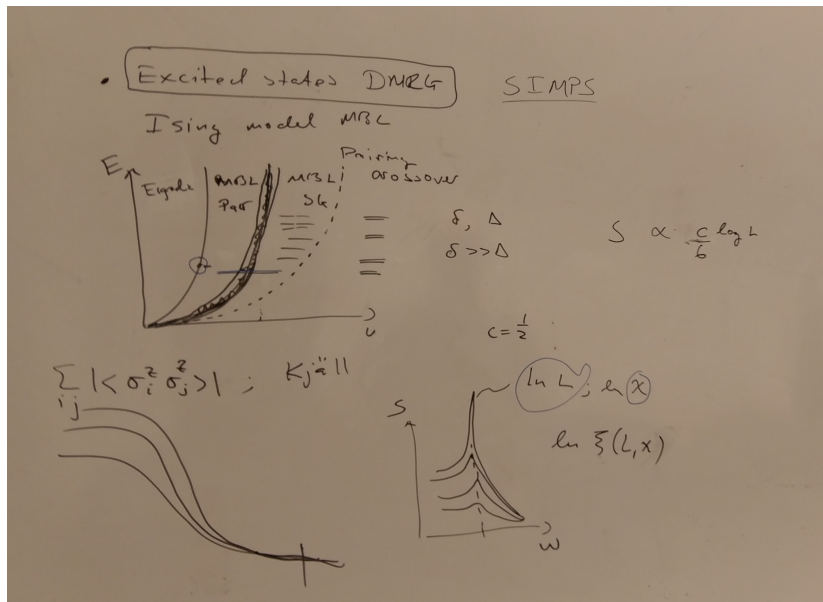 • Excited states DMRG
SIMPS
Ising model MBL
E
Ergodic
MBL
Par
MBL
SG
Pairing
crossover
δ, Δ
δ >> Δ
S ∝ c/6 log L
c = 1/2
∑ij |<σ_i^z σ_j^z>| ;
S
ln L ; ln x
ln ξ(L,x)
W